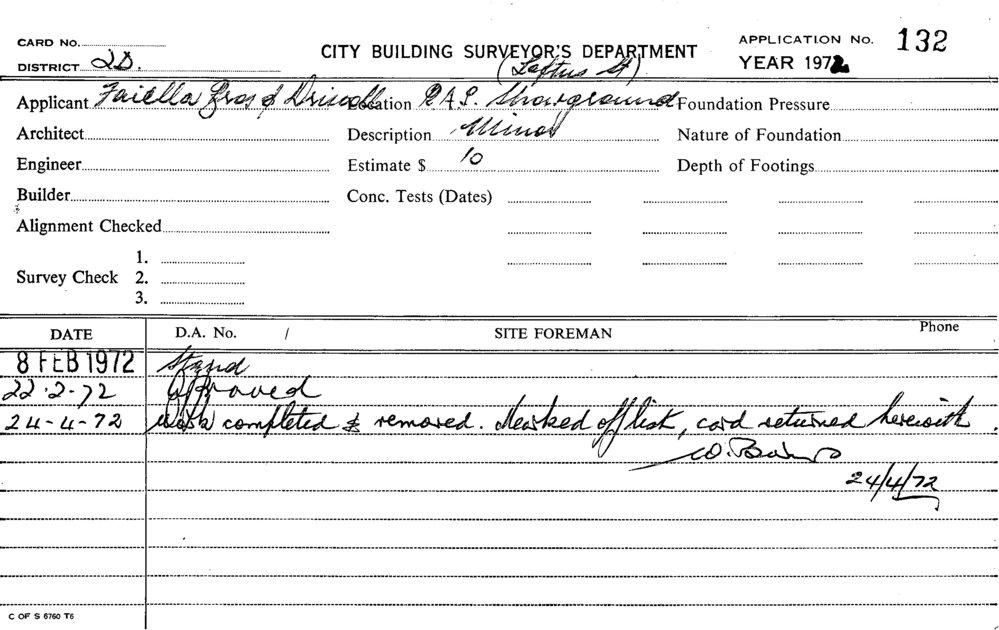 CARD No.
CITY BUILDING SURVEYOR'S DEPARTMENT
APPLICATION No. 132
DISTRICT 2D.
(Loftus St)
YEAR 1972
Applicant Faiella Bros & Driscoll
Location R.A.S. Showground
Foundation Pressure
Architect
Description Minor
Nature of Foundation
Engineer
Estimate $ 10
Depth of Footings
Builder
Conc. Tests (Dates)
Alignment Checked
1.
Survey Check 2.
3.
DATE D.A. No. / SITE FOREMAN Phone
8 FEB 1972 Stand
22.2-72 Approved
24-4-72 Work completed & removed. Marked off list, card returned herewith.
24/4/72
C OF S 6760 T6